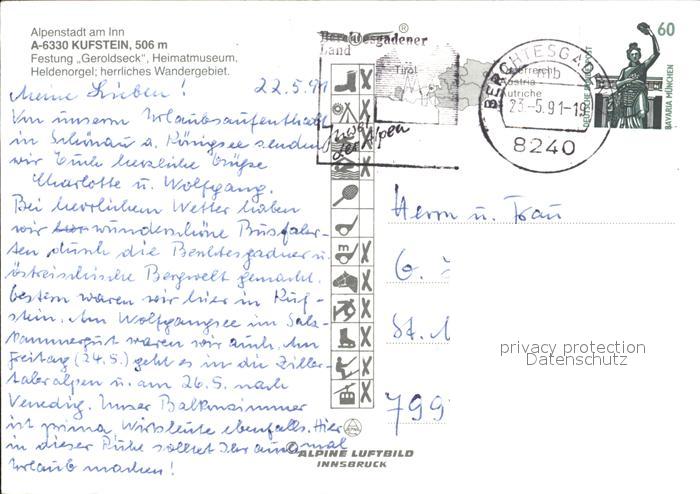 Alpenstadt am Inn
A-6330 KUFSTEIN, 506 m
Festung „Geroldseck", Heimatmuseum,
Heldenorgel; herrliches Wandergebiet.
22.5.91
Meine Lieben!
Von unserm Urlaubsaufenthalt
in Schönau a. Königsee senden
wir Euch herzliche Grüße
Charlotte u. Wolfgang.
Bei herrlichem Wetter haben
wir wunderschöne Busfahr-
ten durch die Berchtesgadner u.
östreichische Bergwelt gemacht.
Gestern waren wir hier in Kuf-
stein. Am Wolfgangsee im Salz-
kammergut waren wir auch. Am
Freitag (24.5.) geht es in die Ziller-
taleralpen u. am 26.5. nach
Venedig. Unser Balkonzimmer
ist prima Wirtsleute ebenfalls. Hier
in dieser Ruhe solltet Ihr auch mal
Urlaub machen!
Berchtesgadener
Land
Tirol
Alpen
Österreich
Austria
Autriche
BERCHTESGADEN
mb
23.-5.91-18
8240
60
DEUTSCHE BUNDESPOST
BAVARIA MÜNCHEN
Herrn u. Frau
G.
St.
799
privacy protection
Datenschutz
ALPINE LUFTBILD
INNSBRUCK